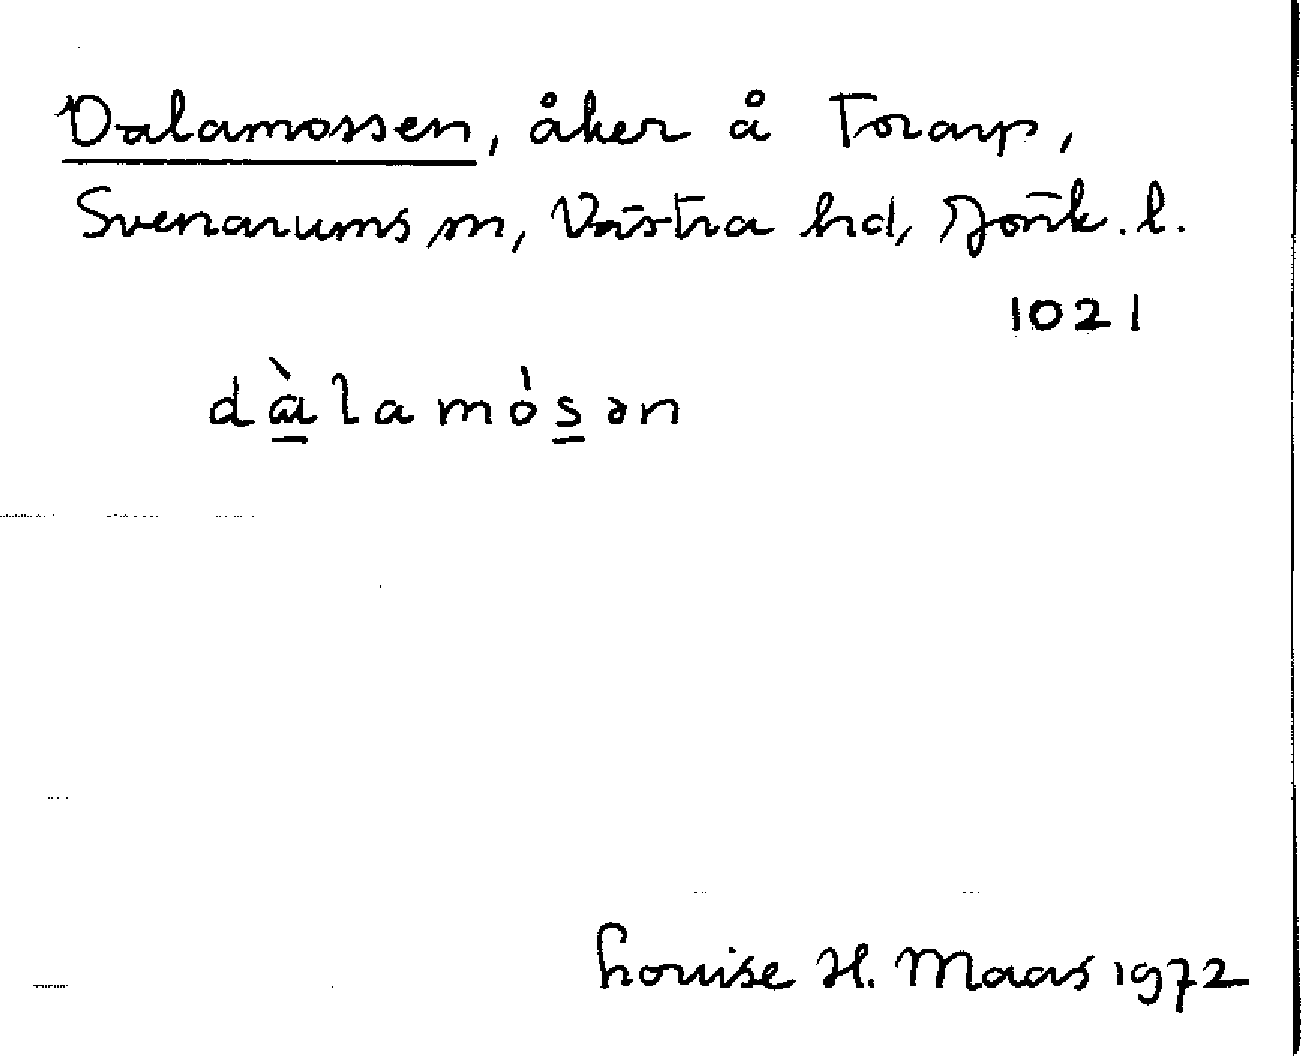 Dalamossen, åker å Torarp,
Svenarums sn, Västra hd, Jönk. l.
1021
dàlamósən
Louise H. Maas 1972